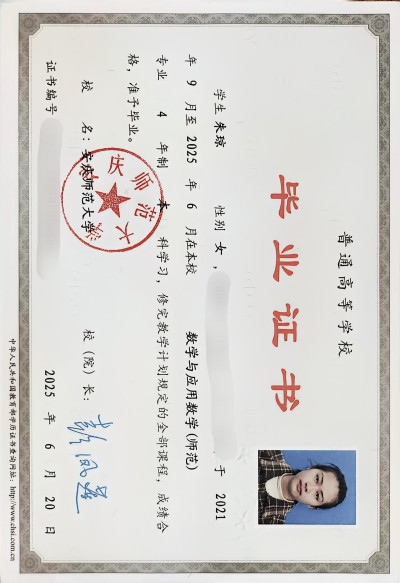 普通高等学校
毕业证书
学生 朱琼 性别 女， 于 2021
年 9 月至 2025 年 6 月在本校 数学与应用数学(师范)
专业 4 年制 本 科学习，修完教学计划规定的全部课程，成绩合
格，准予毕业。
校 名：安庆师范大学 校（院）长：
证书编号 2025 年 6 月 20 日
中华人民共和国教育部学历证书查询网址：http://www.chsi.com.cn